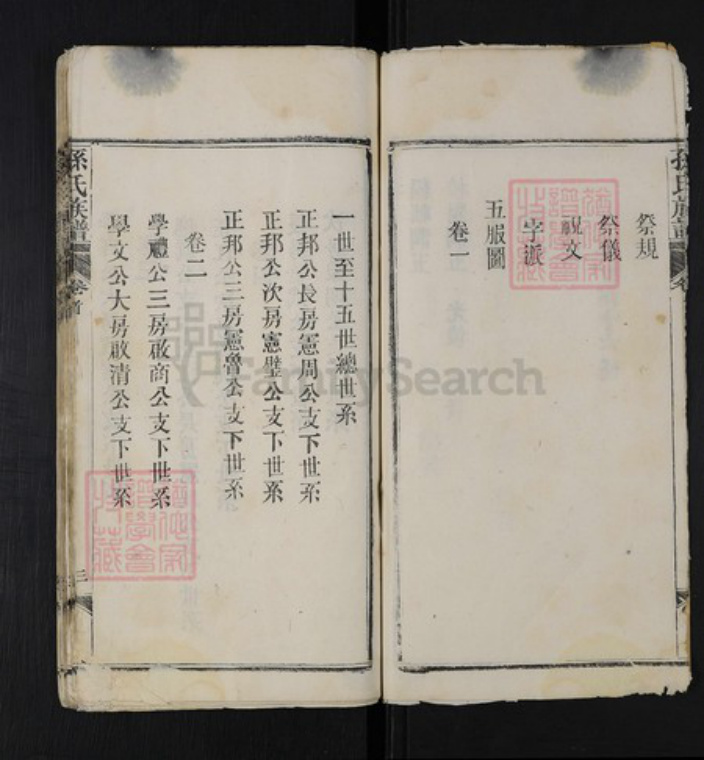 祭規
祭儀
祝文
字派
五服圖
卷一
一世至十五世總世系
正邦公長房憲周公支下世系
正邦公次房憲璧公支下世系
正邦公三房憲魯公支下世系
卷二
學禮公三房啟商公支下世系
學文公大房啟清公支下世系
孫氏族譜
卷首
三
孫氏族譜
卷
FamilySearch